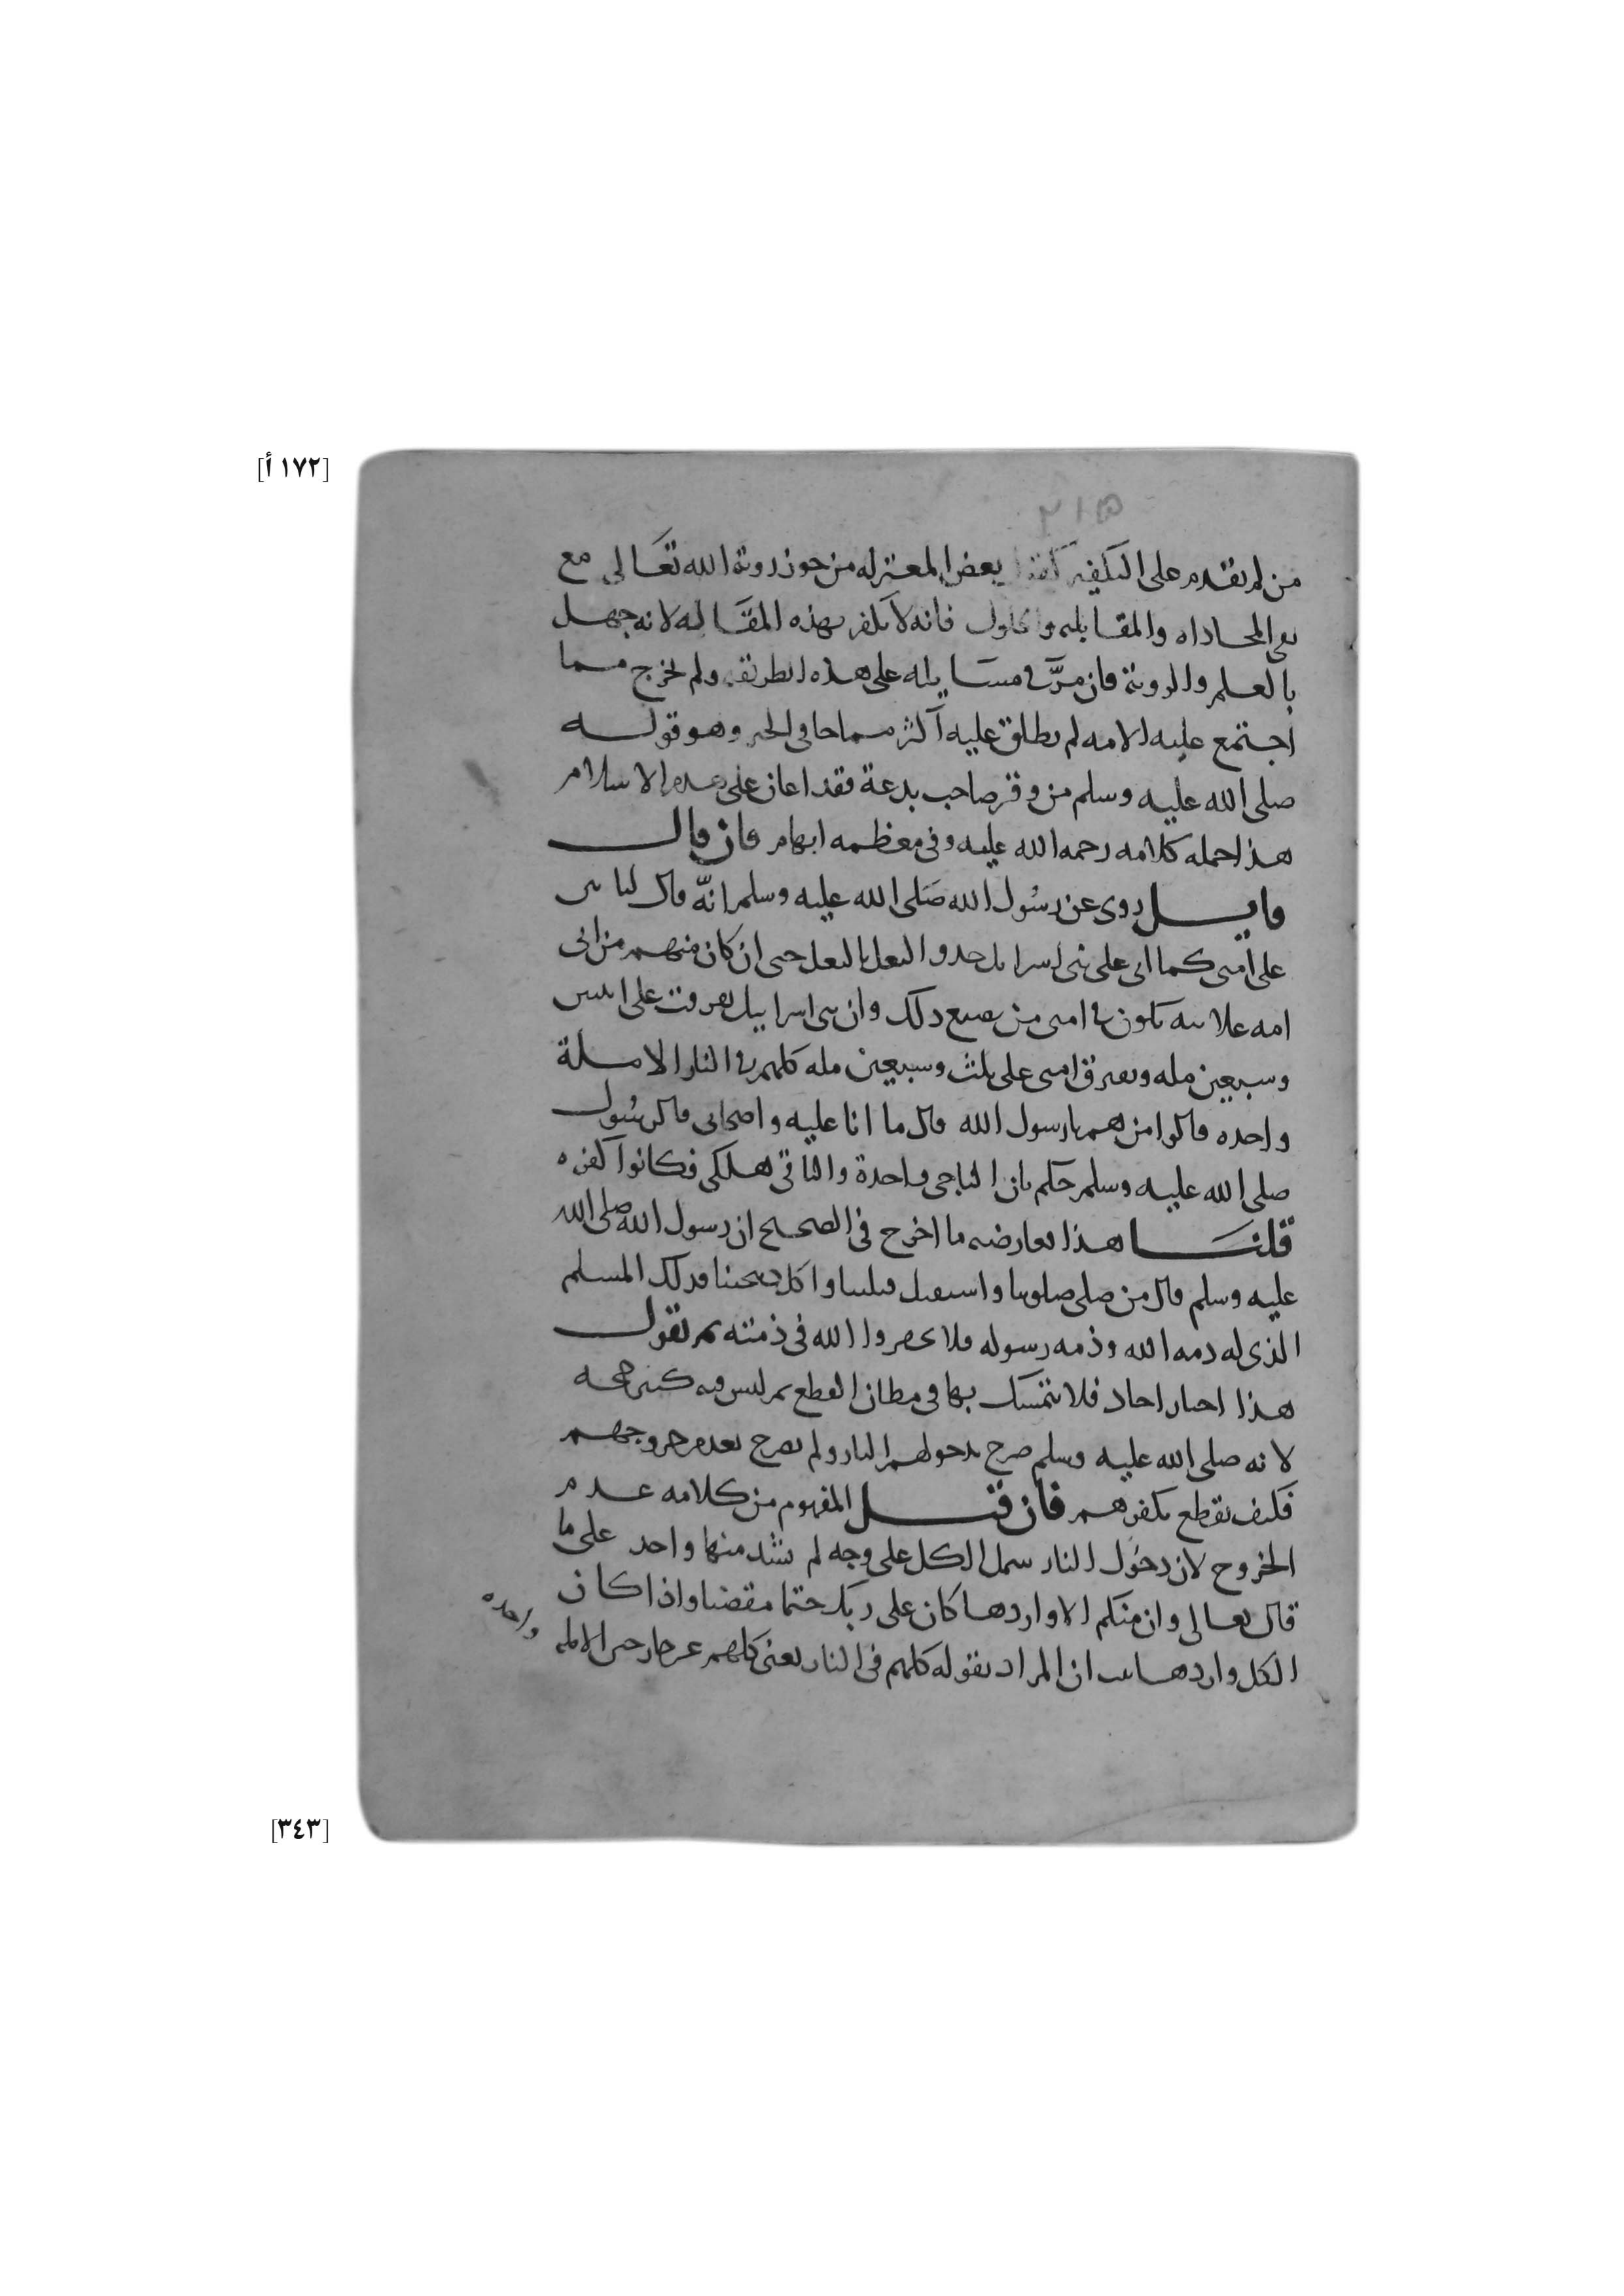 [١٧٢ أ]
٣١٥
من لم يقدم على التكفير كفر بعض المعتزله من جوز روية الله تعالى مع
نفى المحاذاه والمقابله والحلول فانه لا يكفر بهذه المقاله لانه جهل
بالعلم والروية فان مرّ فى مسايله على هذه الطريقه ولم يخرج مما
اجتمع عليه الامه لم يطلق عليه اكثر مما جا فى الخبر وهو قوله
صلى الله عليه وسلم من وقر صاحب بدعة فقد اعان على هدم الاسلام
هذا جمله كلامه رحمه الله عليه وفى معظمه ابهام فان قال
قايل روى عن رسول الله صلى الله عليه وسلم انّه قال لياتين
على امتى كما اتى على بنى اسرايل حدو النعل بالنعل حتى ان كان منهم من اتى
امه علانيه يكون فى امتى من يصنع ذلك وان بنى اسراييل تفرقت على اثنين
وسبعين مله وتفترق امتى على ثلث وسبعين مله كلهم فى النار الا ملة
واحده قالوا من هم يارسول الله قال ما انا عليه واصحابى قال رسول
صلى الله عليه وسلم حكم بان الناجى واحدة والباقى هلكى فكانوا كفره
قلنا هذا يعارضه ما اخرج فى الصحيح ان رسول الله صلى الله
عليه وسلم قال من صلى صلوتنا واستقبل قبلتنا واكل ذبيحتنا فذلك المسلم
الذى له ذمه الله وذمه رسوله فلا تخفروا الله فى ذمته ثم نقول
هذا اخبار احاد فلا نتمسك بها فى مظان القطع ثم ليس فيه كثير حجه
لانه صلى الله عليه وسلم صرح بدخولهم النار ولم يصرح بعدم خروجهم
فكيف نقطع بكفرهم فان قيل المفهوم من كلامه عدم
الخروج لان دخول النار يشمل الكل على وجه لم يشذ منها واحد على ما
قال تعالى وان منكم الا واردها كان على ربك حتما مقضيا واذا كان
الكل واردها ان المراد بقوله كلهم فى النار يعنى كلهم الا مله
واحده
[٣٤٣]